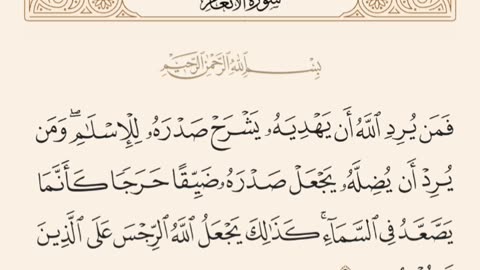 سورة الأنعام
بِسْمِ اللَّهِ الرَّحْمَٰنِ الرَّحِيمِ
فَمَن يُرِدِ اللَّهُ أَن يَهْدِيَهُۥ يَشْرَحْ صَدْرَهُۥ لِلْإِسْلَٰمِ ۖ وَمَن
يُرِدْ أَن يُضِلَّهُۥ يَجْعَلْ صَدْرَهُۥ ضَيِّقًا حَرَجًا كَأَنَّمَا
يَصَّعَّدُ فِى السَّمَآءِ ۚ كَذَٰلِكَ يَجْعَلُ اللَّهُ الرِّجْسَ عَلَى الَّذِينَ